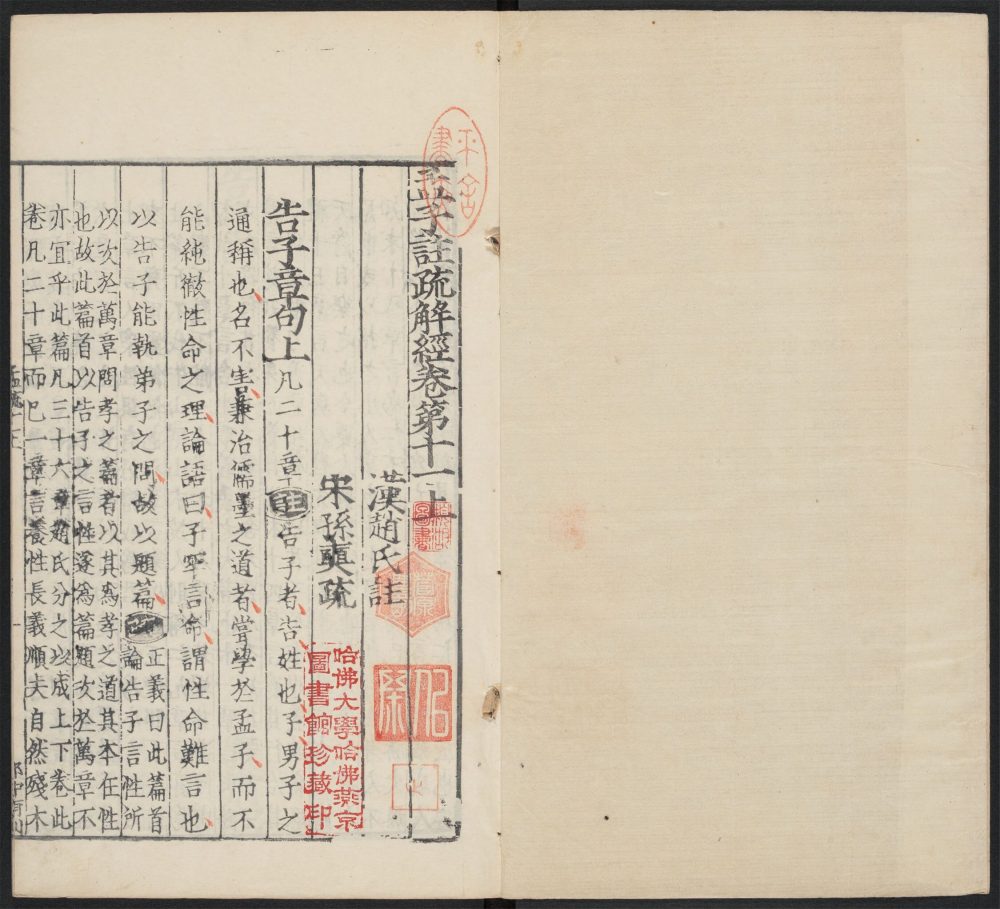 孟子註疏解經卷第十一上
漢趙氏註
宋孫奭疏
告子章句上凡二十章註告子者告姓也子男子之
通稱也名不害兼治儒墨之道者嘗學於孟子而不
能純徹性命之理論語曰子罕言命謂性命難言也
以告子能執弟子之問故以題篇疏正義曰此篇首
論告子言性所
以次於萬章問孝之篇者以其爲孝之道其本在性
也故此篇首以告子之言性遂爲篇題次於萬章不
亦宜乎此篇凡三十六章趙氏分之以成上下卷此
卷凡二十章而已一章言養性長義順夫自然殘木
孟疏十一上
哈佛大學哈佛燕京
圖書館珍藏印